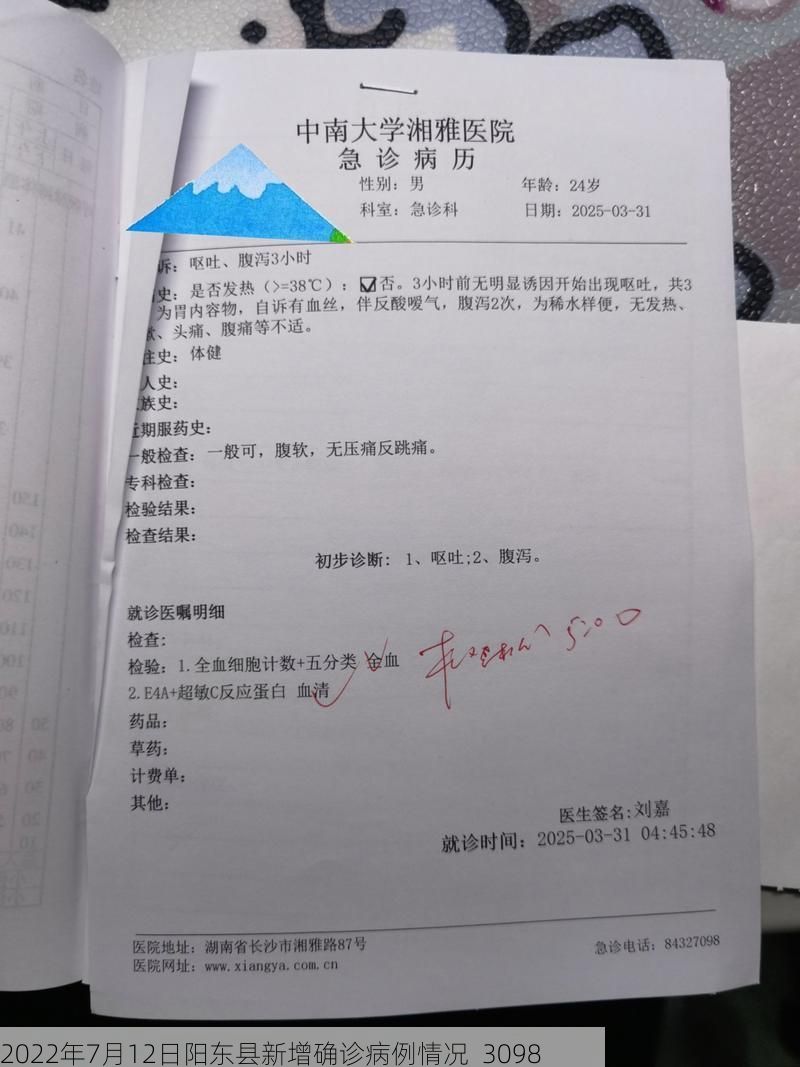 中南大学湘雅医院
急 诊 病 历
性别：男 年龄：24岁
科室：急诊科 日期：2025-03-31
诉：呕吐、腹泻3小时
史：是否发热（>=38℃）：☑否。3小时前无明显诱因开始出现呕吐，共3
为胃内容物，自诉有血丝，伴反酸嗳气，腹泻2次，为稀水样便，无发热、
、头痛、腹痛等不适。
往史：体健
人史：
族史：
近期服药史：
一般检查：一般可，腹软，无压痛反跳痛。
专科检查：
检验结果：
检查结果：
初步诊断： 1、呕吐;2、腹泻。
就诊医嘱明细
检查：
检验：1.全血细胞计数+五分类 全血
2.E4A+超敏C反应蛋白 血清
5:00
药品：
草药：
计费单：
其他：
医生签名:刘嘉
就诊时间：2025-03-31 04:45:48
医院地址：湖南省长沙市湘雅路87号 急诊电话：84327098
医院网址：www.xiangya.com.cn
2022年7月12日阳东县新增确诊病例情况 3098